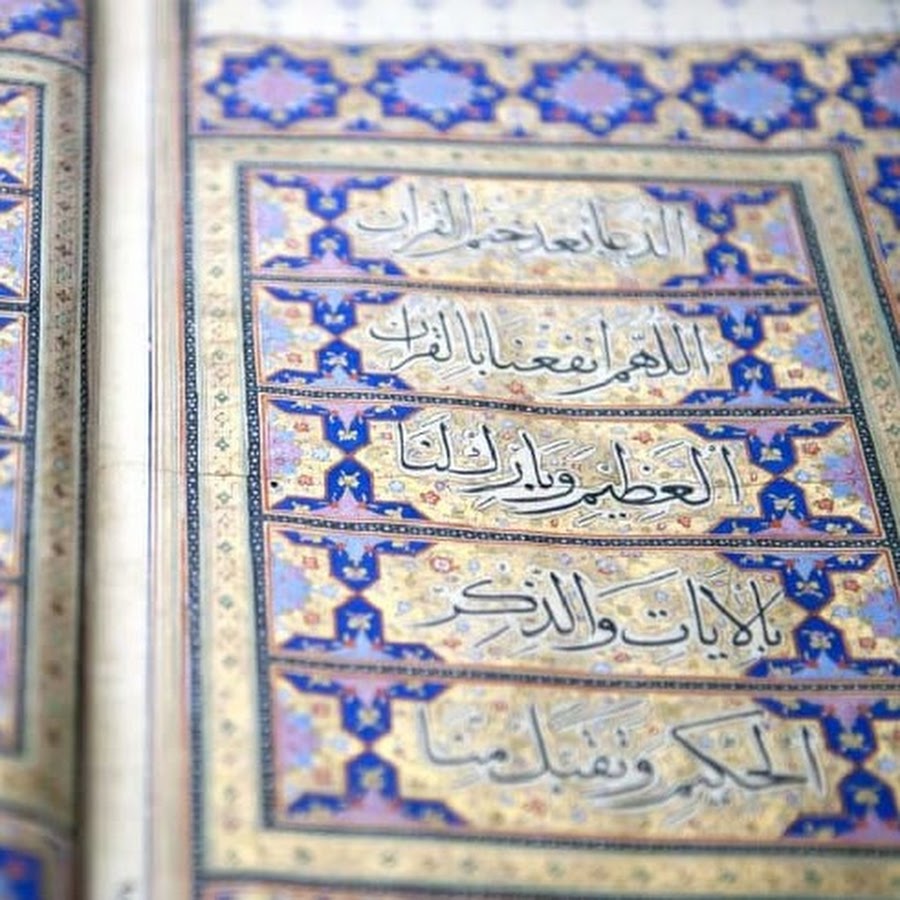 الدعاء بعد ختم القران
اللهم انفعنا بالقران
العَظيمِ وَبَارِك لَنَا
بالايَات وَالذكر
الحكيم وتقبل منا